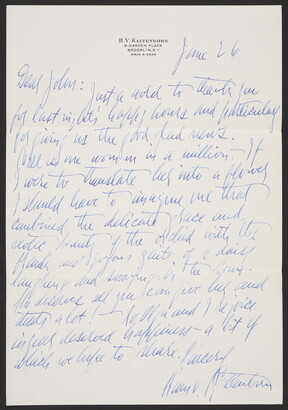 H. V. KALTENBORN
9 GARDEN PLACE
BROOKLYN, N.Y.
MAIN 4-3434
June 26
Dear John:
Just a word to thank you
for last night's happy hours and particularly
for giving us the good glad news.
is one woman in a million. If
I were to translate her into a flower
I should have to imagine one that
combined the delicate grace and
exotic beauty of the orchid with the
and qualities of a daisy
laughing and swaying in the sun.
She deserves all you can give her and
that's a lot! and I rejoice
in your deserved happiness – a lot of
which we hope to share. Sincerely
Hans v. Kaltenborn